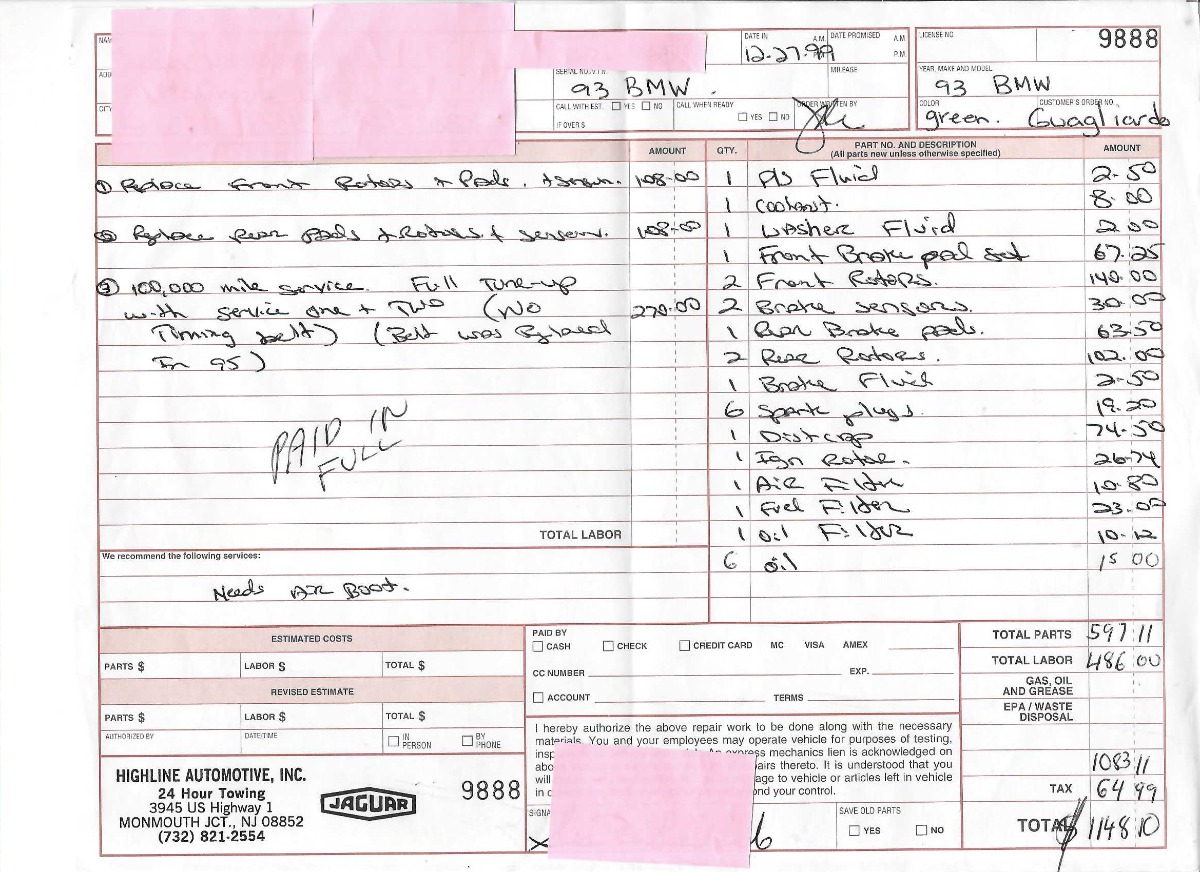 NAM
ADD
CITY
DATE IN A.M. DATE PROMISED A.M.
12-27-99 P.M.
LICENSE NO.
9888
SERIAL NO./V.I.N.
MILEAGE
93 BMW.
YEAR, MAKE AND MODEL
93 BMW
CALL WITH EST. YES NO
CALL WHEN READY
YES NO
ORDER WRITTEN BY
IF OVER $
COLOR
green.
CUSTOMER'S ORDER NO.
Guagliardo
AMOUNT
QTY. PART NO. AND DESCRIPTION AMOUNT
(All parts new unless otherwise specified)
① Replace Front Rotors + Pads. + sensors. 108-00
② Replace Rear pads + Rotors + sensors. 108-00
③ 100,000 mile service. Full Tune-up
with service one + Two (No 270-00
Timing belt) (Belt was Replaced
In 95)
PAID IN
FULL
TOTAL LABOR
1 P/S Fluid 2-50
1 coolant. 8-00
1 Washer Fluid 2.00
1 Front Brake pad set 67.25
2 Front Rotors. 140-00
2 Brake sensors. 30-00
1 Rear Brake pads. 63-50
2 Rear Rotors. 102.00
1 Brake Fluid 2-50
6 Spark plugs. 19-20
1 Dist cap 74-50
1 Ign Rotor. 26-74
1 Air Filter 10-80
1 Fuel Filter 23-00
1 oil Filter 10-12
6 oil 15 00
We recommend the following services:
Needs Air Boot.
ESTIMATED COSTS
PARTS $ LABOR $ TOTAL $
REVISED ESTIMATE
PARTS $ LABOR $ TOTAL $
AUTHORIZED BY DATE/TIME IN PERSON BY PHONE
HIGHLINE AUTOMOTIVE, INC.
24 Hour Towing
3945 US Highway 1
MONMOUTH JCT., NJ 08852
(732) 821-2554
JAGUAR
9888
PAID BY
CASH CHECK CREDIT CARD MC VISA AMEX
CC NUMBER EXP.
ACCOUNT TERMS
I hereby authorize the above repair work to be done along with the necessary
materials. You and your employees may operate vehicle for purposes of testing,
insp express mechanics lien is acknowledged on
abo airs thereto. It is understood that you
will age to vehicle or articles left in vehicle
in c nd your control.
SIGNA
X
SAVE OLD PARTS
YES NO
TOTAL PARTS 597 11
TOTAL LABOR 486 00
GAS, OIL
AND GREASE
EPA / WASTE
DISPOSAL
1083 11
TAX 64 99
TOTAL $ 1148 10